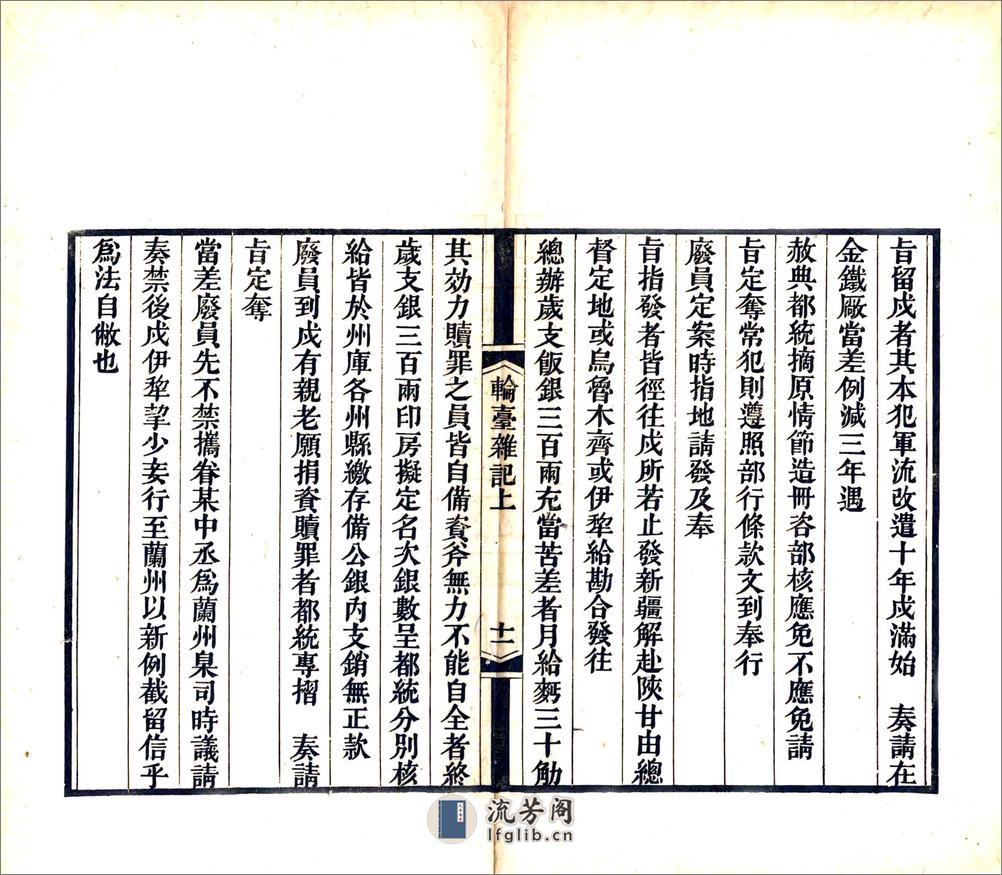 旨留戍者其本犯軍流改遣十年戍滿始　奏請在
金鐵厰當差例減三年遇
赦典都統摘原情節造冊咨部核應免不應免請
旨定奪常犯則遵照部行條款文到奉行
廢員定案時指地請發及奉
旨指發者皆徑往戍所若止發新疆解赴陝甘由總
督定地或烏魯木齊或伊犂給勘合發往
總辦歲支飯銀三百兩充當苦差者月給麪三十觔
輪臺雜記上
十一
其効力贖罪之員皆自備資斧無力不能自全者終
歲支銀三百兩印房擬定名次銀數呈都統分別核
給皆於州庫各州縣繳存備公銀內支銷無正款
廢員到戍有親老願捐資贖罪者都統專摺　奏請
旨定奪
當差廢員先不禁攜眷某中丞爲蘭州臬司時議請
奏禁後戍伊犂挈少妾行至蘭州以新例截留信乎
爲法自敝也
流芳阁
lfglib.cn